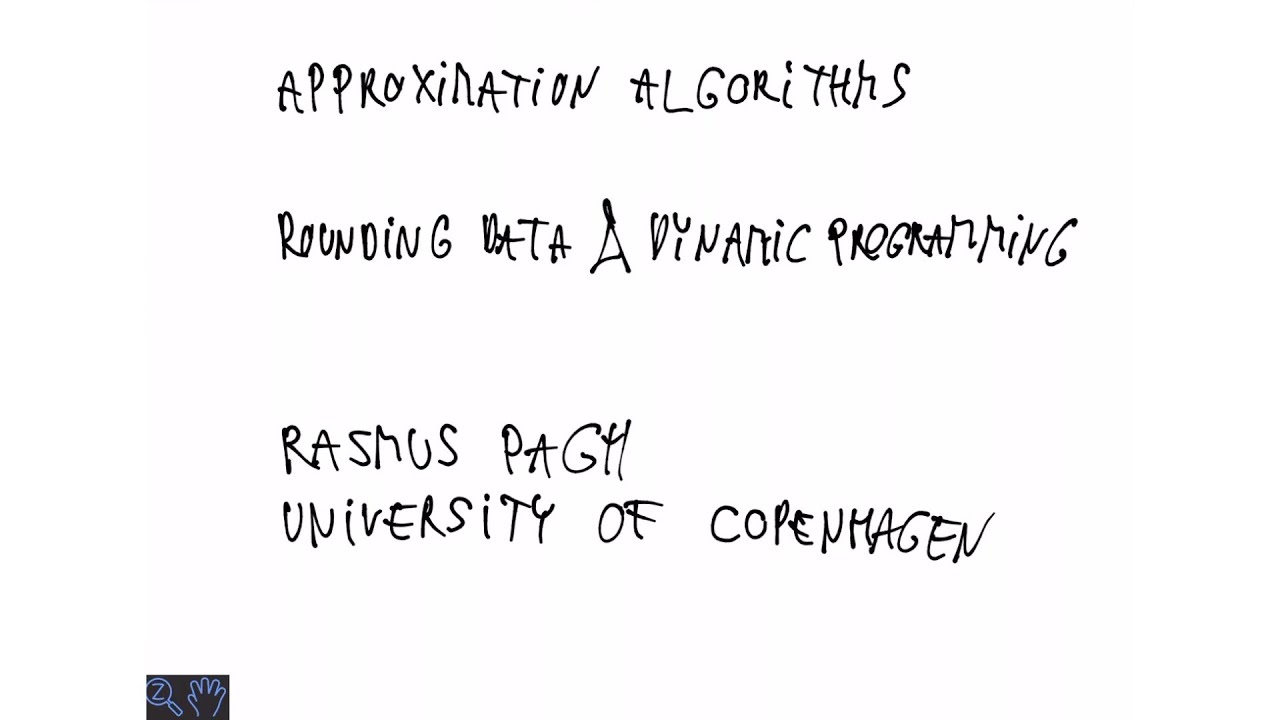 APPROXiMATiON ALGORiTHMS
ROUNDiNG DATA & DYNAMiC PROGRAMMiNG
RASMUS PAGH
UNiVERSiTY OF COPENHAGEN
Z